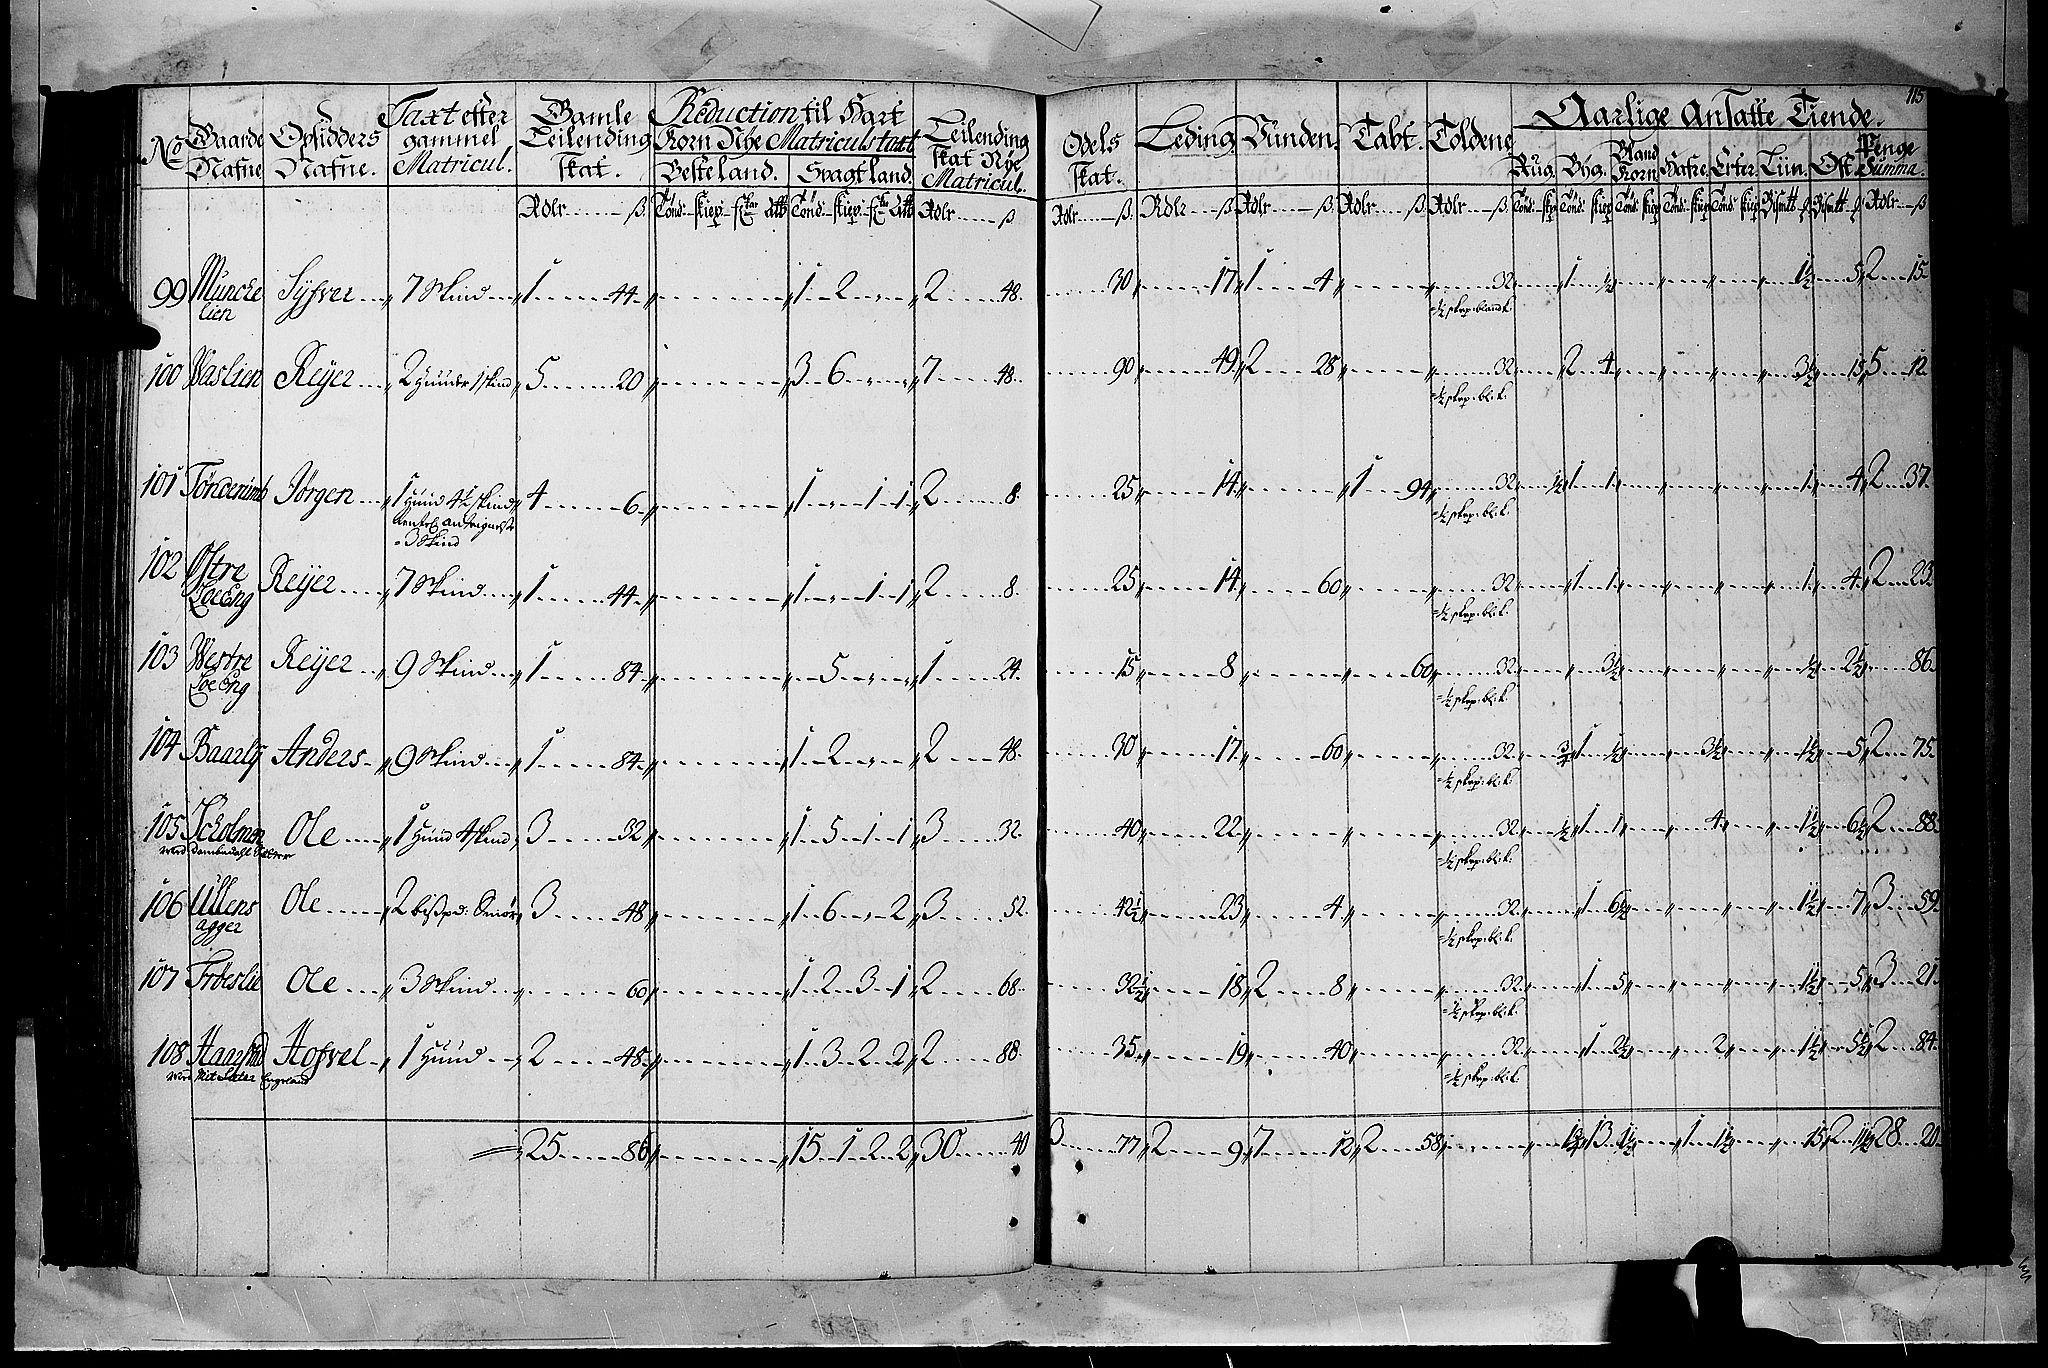 115
No
Gaarde Nafne
Opsidders Nafne.
Taxt efter gammel Matricul.
Gamle Leilending skat.
Reduction til Hart Korn Nye Matriculs taxt
Besteland. Svagtland.
Leilending skat Nye Matricul.
Odels skat.
Leding
Vunden.
Tabt.
Toldene
Aarlige Ansatte Tiende.
Rug. Byg. Bland Korn Hafre. Erter Liin. Ost. Penge Summa.
Rdlr ß. Tønd: skiep: Tønd: skiep: Rdlr ß
Rdlr ß. Rdlr ß Rdlr ß. Rdlr ß Rdlr ß. Tønd: skiep Tønd: skiep Tønd: skiep Tønd: skiep Tønd: skiep Bismtt Bismtt Rdlr ß
99 Muncke Syfver 7 Skind 1 44 1 2 2 48. 30 17 1 4 32 1 ½ 1½ 5 2 15
lien
½ skep: blandk.
100 Waslien Reyer 2 Huuder 1 skind 5 20 3 6 7 48. 90 49 2 28 32 2 4 3½ 15 5 12
½ skep: bl: k.
101 Jørgen 1 Huud 4½ skind 4 6 1 1 1 2 8. 25 14 1 94 32 ½ 1 1 1 4 2 37.
½ skep: bl: k.
3 Skind
102 Østre Reyer 7 Skind 1 44 1 1 1 2 8. 25 14 60 32 1 1 1 4 2 23
Loeeng
½ skep: bl: k.
103 Westre Reyer 9 Skind 1 84 5 1 24. 15 8 60 32 3½ ½ 2½ 86
Loeeng
½ skep: bl: k.
104 Baarly Anders 9 Skind 1 84 1 2 2 48. 30 17 60 32 1 ½ 3½ 1½ 5 2 75.
½ skep: bl: k.
105 Scholmen Ole 1 Huud 4 skind 3 32 1 5 1 1 3 32. 40 22 32 ½ 1 1 4 1½ 6½ 2 88
½ skep: bl: k.
106 Ullens Ole 2 bißpd: Smør 3 48 1 6 2 3 52. 42½ 23 4 32 1 6½ 1½ 7 3 59
agger
½ skep: bl: k.
107 Frøeslie Ole 3 Skind 60 1 2 3 1 2 68. 32½ 18 2 8 32 1 5 1½ 5 3 21
½ skep: bl: k.
108 Haarstad Hofvel 1 Huud 2 48 1 3 2 2 2 88. 35 19 40 32 1 2½ 2 1½ 5½ 2 84
½ skep: bl: k.
25 86 15 1 2 2 30 40 3 77 2 9 7 12 2 58 13 1½ 1 1½ 15 2 28 20